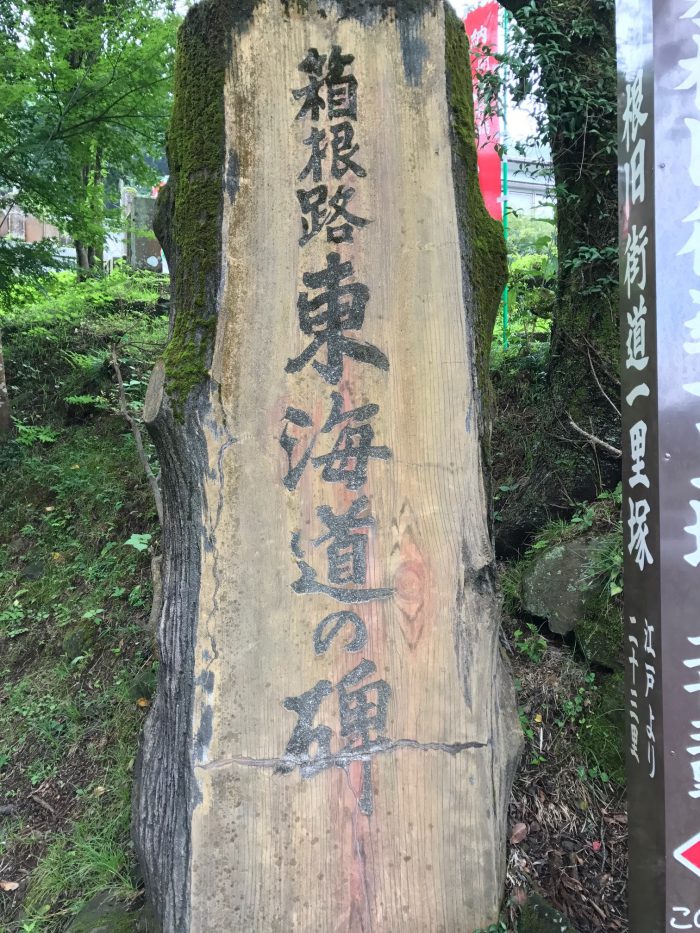 箱根路東海道の碑
根旧街道一里塚
江戸より
二十二里
納
こ